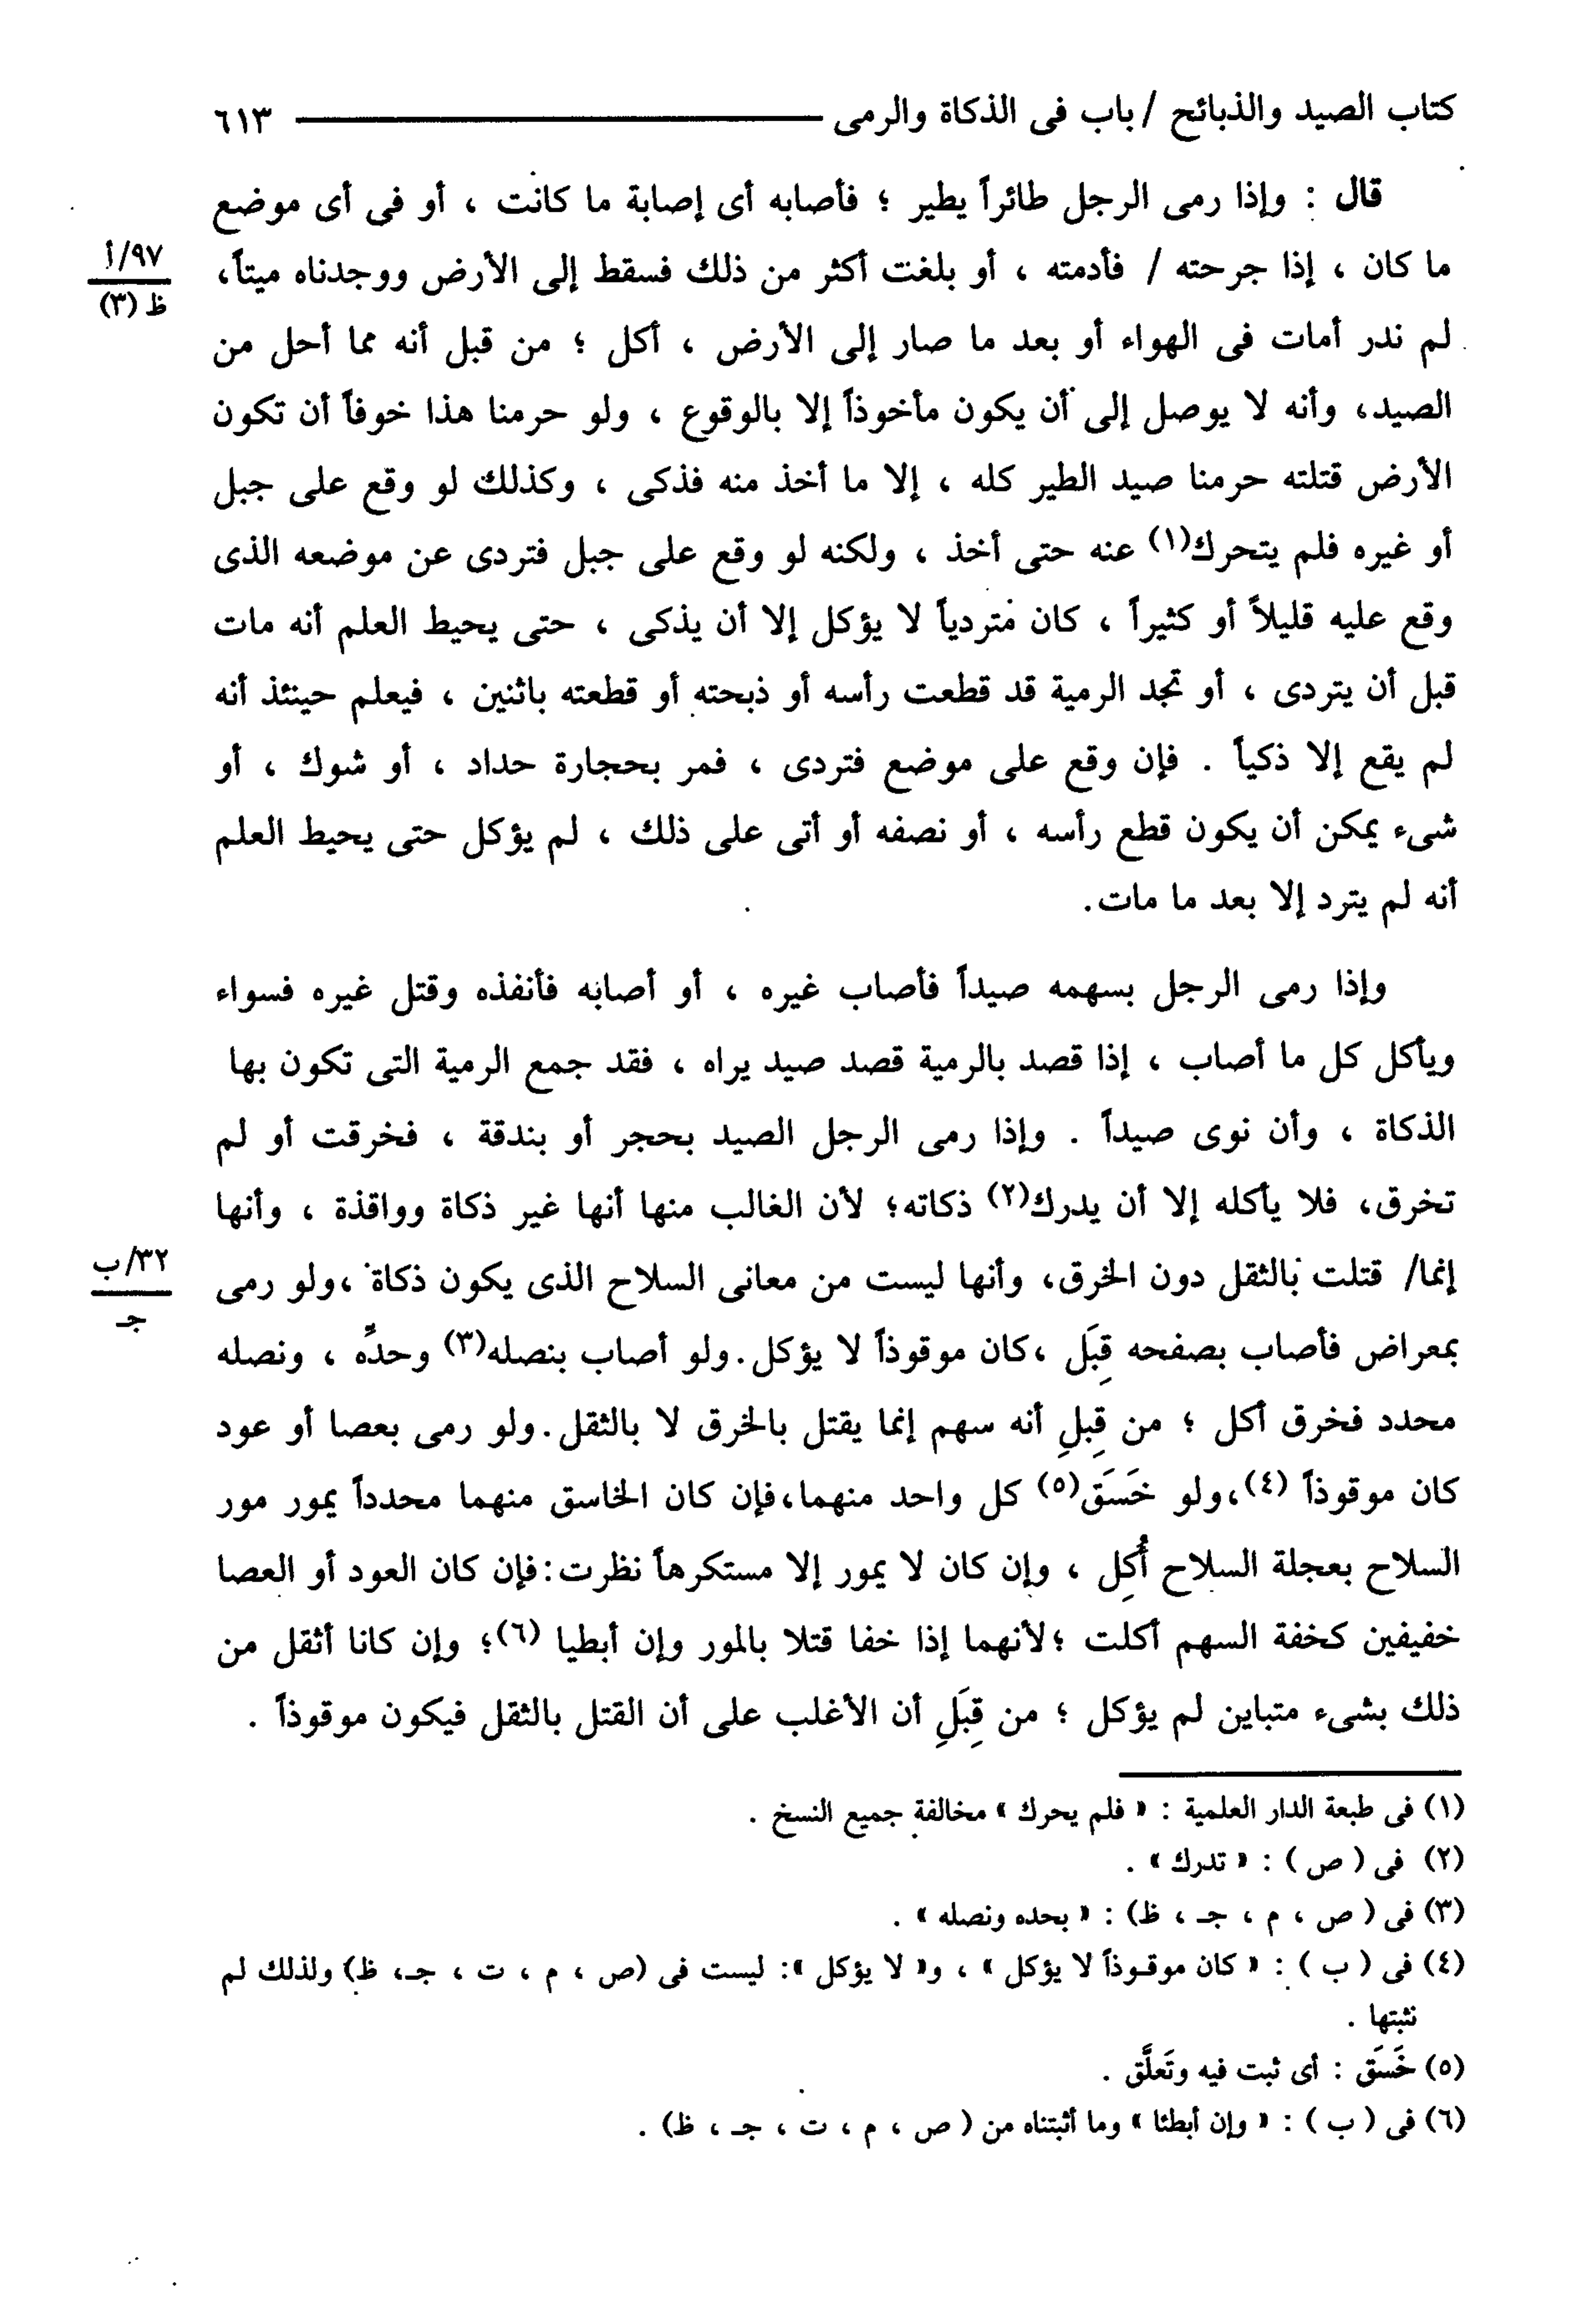 كتاب الصيد والذبائح / باب فى الذكاة والرمى ٦١٣
قال : وإذا رمى الرجل طائراً يطير ؛ فأصابه أى إصابة ما كانت ، أو فى أى موضع
ما كان ، إذا جرحته / فأدمته ، أو بلغت أكثر من ذلك فسقط إلى الأرض ووجدناه ميتاً،
٩٧/أ
ظ (٣)
لم ندر أمات فى الهواء أو بعد ما صار إلى الأرض ، أكل ؛ من قبل أنه مما أحل من
الصيد، وأنه لا يوصل إلى أن يكون مأخوذاً إلا بالوقوع ، ولو حرمنا هذا خوفاً أن تكون
الأرض قتلته حرمنا صيد الطير كله ، إلا ما أخذ منه فذكى ، وكذلك لو وقع على جبل
أو غيره فلم يتحرك(١) عنه حتى أخذ ، ولكنه لو وقع على جبل فتردى عن موضعه الذى
وقع عليه قليلاً أو كثيراً ، كان متردياً لا يؤكل إلا أن يذكى ، حتى يحيط العلم أنه مات
قبل أن يتردى ، أو تجد الرمية قد قطعت رأسه أو ذبحته أو قطعته باثنين ، فيعلم حينئذ أنه
لم يقع إلا ذكياً . فإن وقع على موضع فتردى ، فمر بحجارة حداد ، أو شوك ، أو
شىء يمكن أن يكون قطع رأسه ، أو نصفه أو أتى على ذلك ، لم يؤكل حتى يحيط العلم
أنه لم يترد إلا بعد ما مات.
وإذا رمى الرجل بسهمه صيداً فأصاب غيره ، أو أصابه فأنفذه وقتل غيره فسواء
ويأكل كل ما أصاب ، إذا قصد بالرمية قصد صيد يراه ، فقد جمع الرمية التى تكون بها
الذكاة ، وأن نوى صيداً . وإذا رمى الرجل الصيد بحجر أو بندقة ، فخرقت أو لم
تخرق، فلا يأكله إلا أن يدرك(٢) ذكاته؛ لأن الغالب منها أنها غير ذكاة وواقذة ، وأنها
إنما/ قتلت بالثقل دون الخرق، وأنها ليست من معانى السلاح الذى يكون ذكاة ،ولو رمى
٣٢/ب
جـ
بمعراض فأصاب بصفحه قِبَل ،كان موقوذاً لا يؤكل.ولو أصاب بنصله(٣) وحدِّه ، ونصله
محدد فخرق أكل ؛ من قِبلِ أنه سهم إنما يقتل بالخرق لا بالثقل.ولو رمى بعصا أو عود
كان موقوذاً (٤)،ولو خَسَق(٥) كل واحد منهما،فإن كان الخاسق منهما محدداً يمور مور
السلاح بعجلة السلاح أُكِل ، وإن كان لا يمور إلا مستكرهاً نظرت:فإن كان العود أو العصا
خفيفين كخفة السهم أكلت ؛لأنهما إذا خفا قتلا بالمور وإن أبطيا (٦)؛ وإن كانا أثقل من
ذلك بشىء متباين لم يؤكل ؛ من قِبَلِ أن الأغلب على أن القتل بالثقل فيكون موقوذاً .
(١) فى طبعة الدار العلمية : « فلم يحرك » مخالفة جميع النسخ .
(٢) فى ( ص ) : « تدرك » .
(٣) فى ( ص ، م ، جـ ، ظ) : « بحده ونصله » .
(٤) فى ( ب ) : « كان موقوذاً لا يؤكل » ، و« لا يؤكل »: ليست فى (ص ، م ، ت ، جـ، ظ) ولذلك لم
نثبتها .
(٥) خَسَق : أى ثبت فيه وتَعلَّق .
(٦) فى ( ب ) : « وإن أبطئا » وما أثبتناه من ( ص ، م ، ت ، جـ ، ظ) .